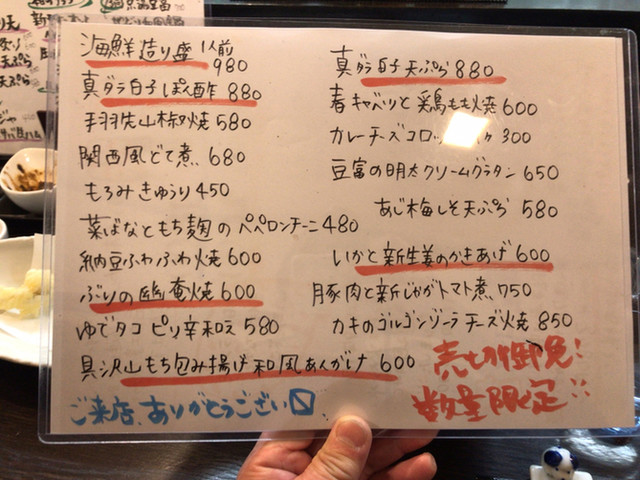 海鮮造り盛 1人前 980
真ダラ白子ぽん酢 880
手羽先山椒焼 580
関西風どて煮 680
もろみきゅうり 450
菜ばなともち麹のペペロンチーニ 480
納豆ふわふわ焼 600
ぶりの幽庵焼 600
ゆでタコピリ辛和え 580
具沢山もち包み揚げ和風あんがけ 600
ご来店、ありがとうござい〼
真ダラ白子天ぷら 880
春キャベツと鶏もも焼 600
カレーチーズコロッ 300
豆富の明太クリームグラタン 650
あじ梅しそ天ぷら 580
いかと新生姜のかきあげ 600
豚肉と新じゃがトマト煮 750
カキのゴルゴンゾーラチーズ焼 850
売切御免!
数量限定